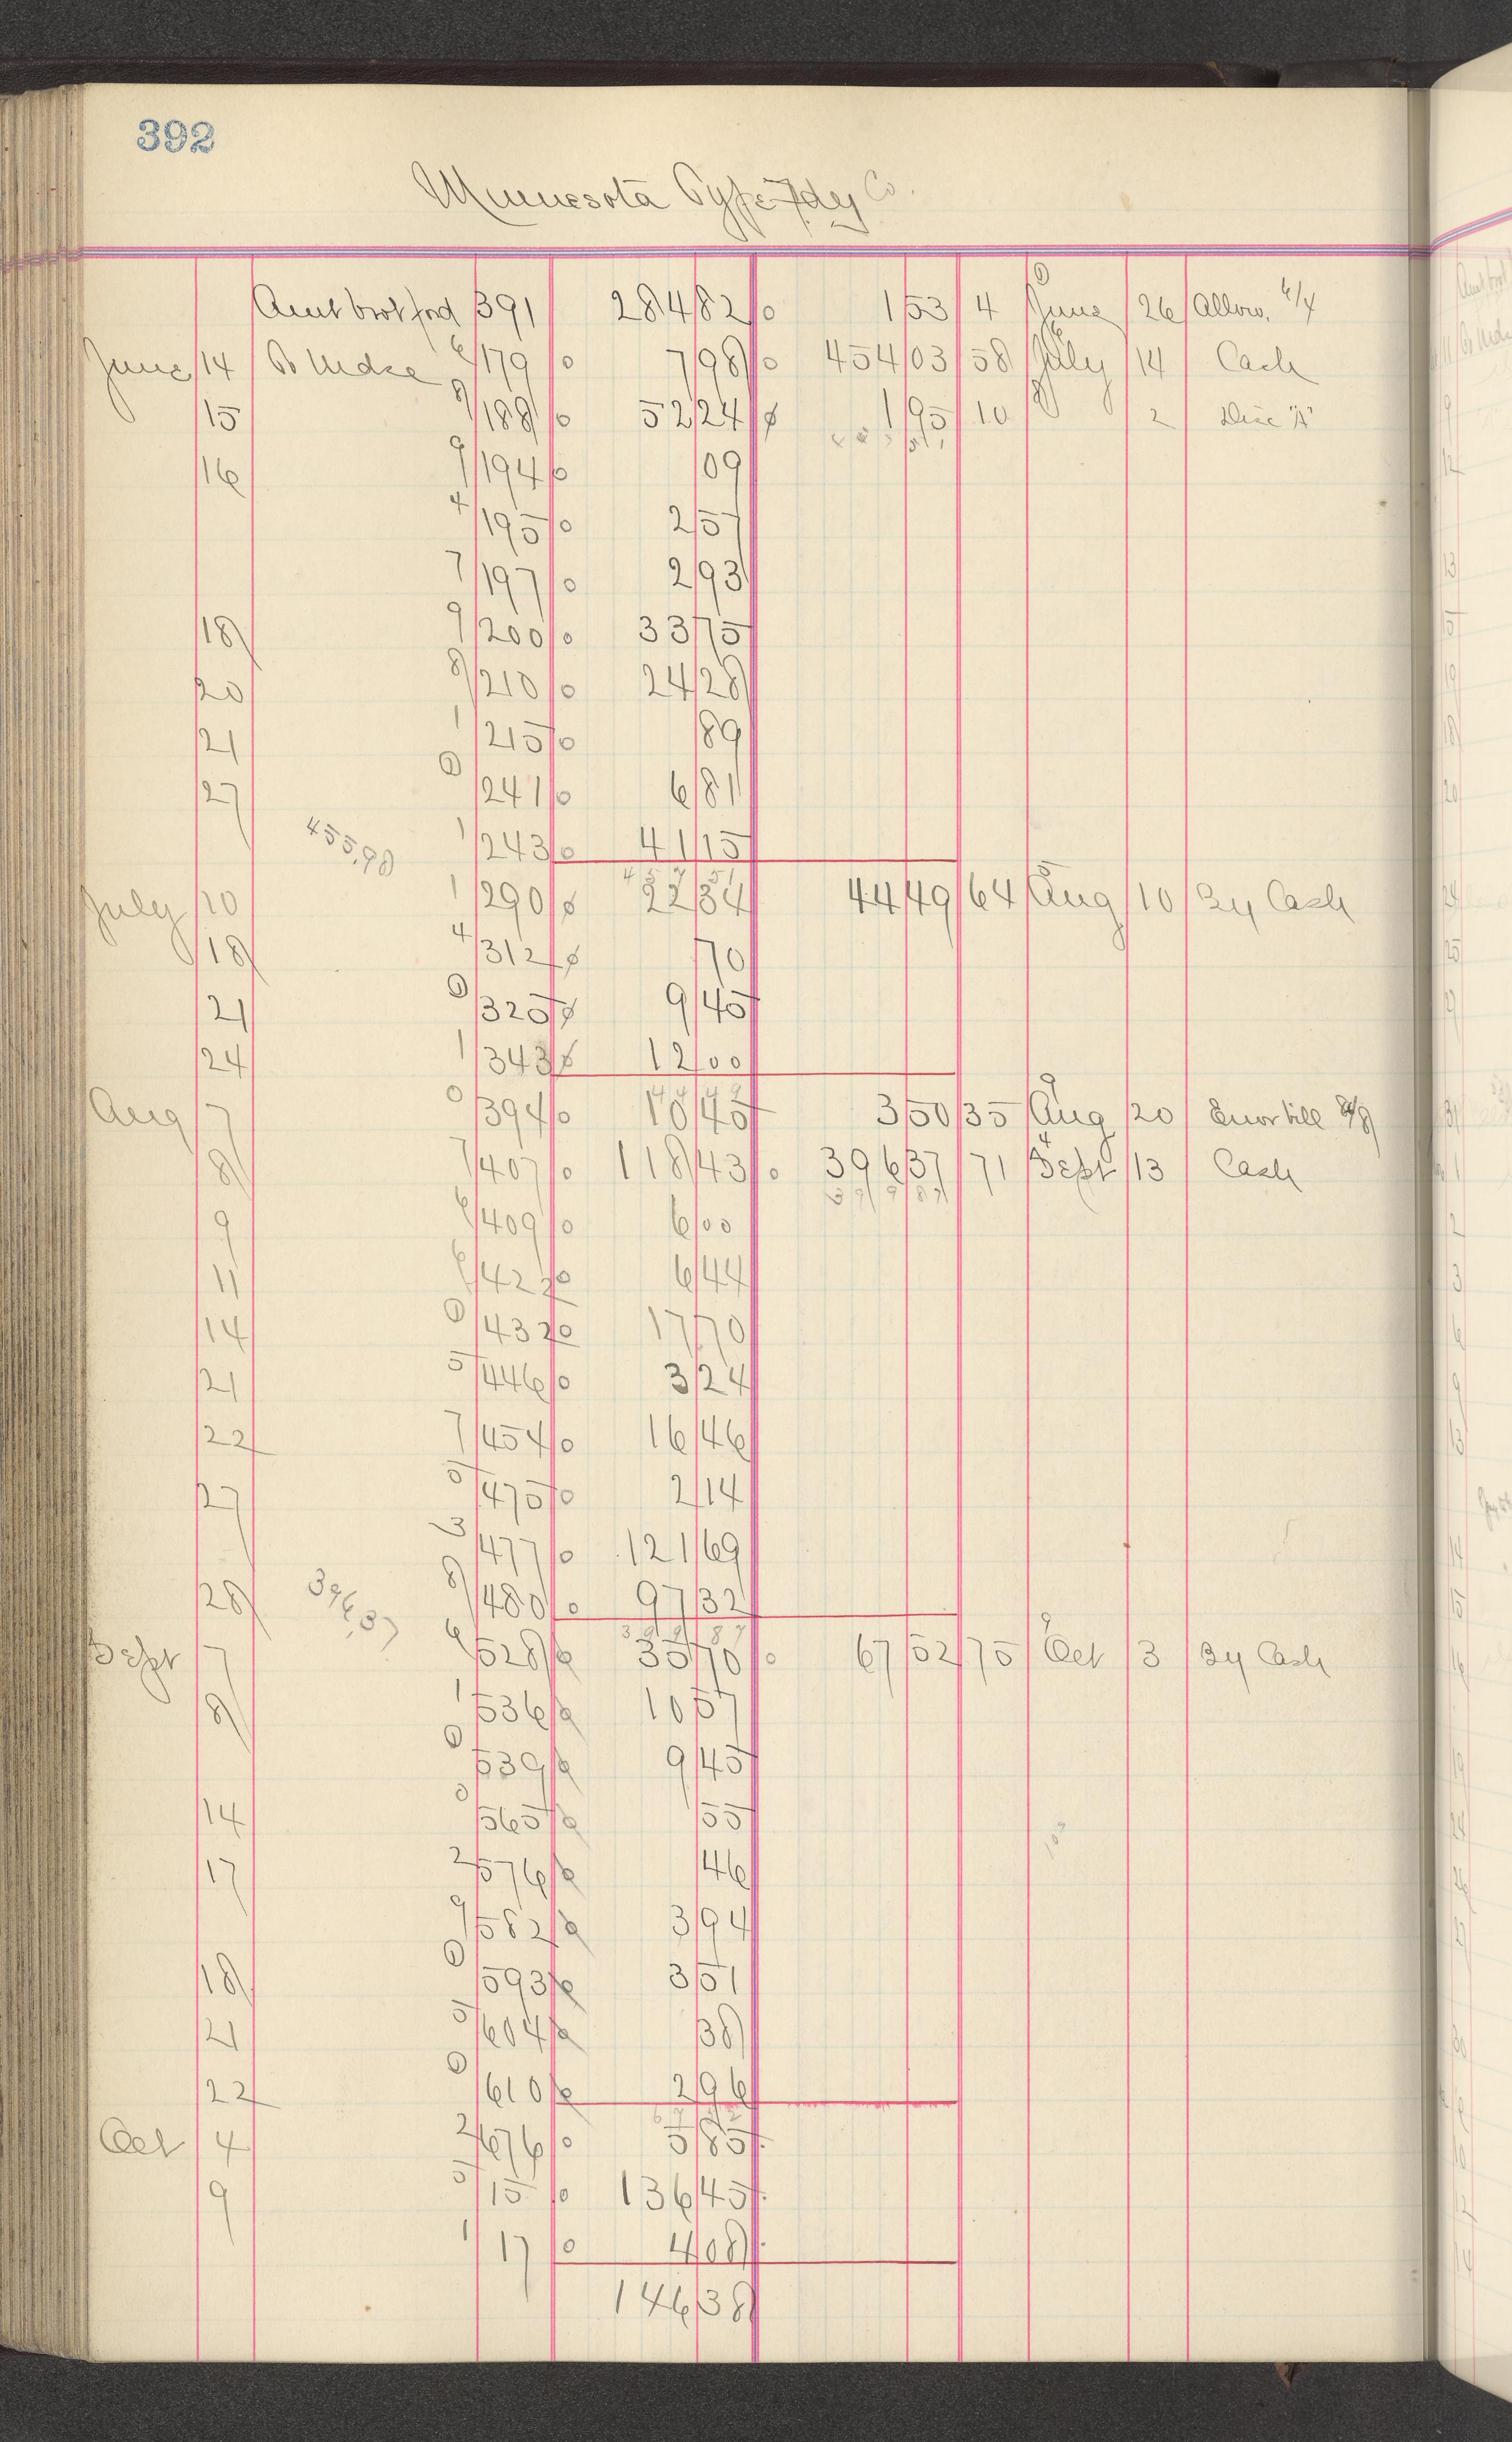 392
Minnesota Type Fdy Co.
Amt brot ford 391 284 82 0 1 53 4 June 26 Allow. 6/4
June 14 To Mdse 6/179 0 7 98 0 454 03 58 July 14 Cash
15 8/188 0 52 24 1 95 10 2 Disc "A"
16 9/194 0 09
4/195 0 2 57
7/197 0 2 93
18 9/200 0 33 75
20 8/210 0 24 28
21 1/215 0 89
27 0/241 0 6 81
455.98 1/243 0 41 15
July 10 1/290 0 22 34 44 49 64 Aug 10 By Cash
18 4/312 70
21 0/325 9 45
24 1/343 12 00
Aug 7 0/394 0 10 45 3 50 35 Aug 20 Error bill 8/8
8 7/407 0 118 43 0 396 37 71 Sept 13 Cash
9 6/409 0 6 00
11 6/422 0 6 44
14 0/432 0 17 70
21 5/446 0 3 24
22 7/454 0 16 46
27 5/475 0 2 14
3/477 0 121 69
28 396.37 8/480 0 97 32
Sept 7 6/528 35 70 0 67 52 75 Oct 3 By Cash
8 1/536 10 57
0/539 9 45
14 0/565 55
17 2/576 46
9/582 3 94
18 0/593 3 51
21 5/604 38
22 0/610 2 96
Oct 4 2/676 0 5 85
9 5/15 0 136 45
1/17 0 4 08
146 38